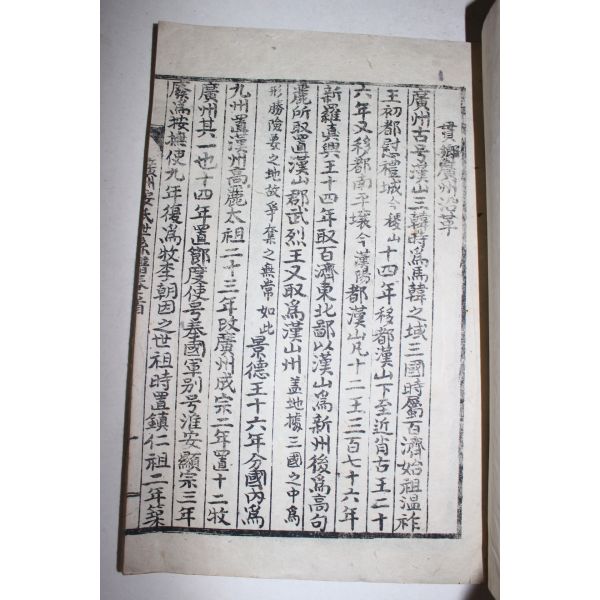 貫鄕廣州沿革
廣州古号漢山三韓時爲馬韓之域三國時屬百濟始祖温祚
王初都慰禮城今稷山十四年移都漢山下至近肖古王二十
六年又移都南平壤今漢陽都漢山凡十二王三百七十六年
新羅真興王十四年取百濟東北鄙以漢山爲新州後爲高句
麗所取置漢山郡武烈王又取爲漢山州盖地據三國之中爲
形勝險要之地故爭奪之無常如此景德王十六年分國內爲
九州置漢州高麗太祖二十三年改廣州成宗二年置十二牧
廣州其一也十四年置節度使号奉國軍别号淮安顯宗三年
廢爲按撫使九年復爲牧李朝因之世祖時置鎮仁祖二年築
廣州安氏世系譜卷首